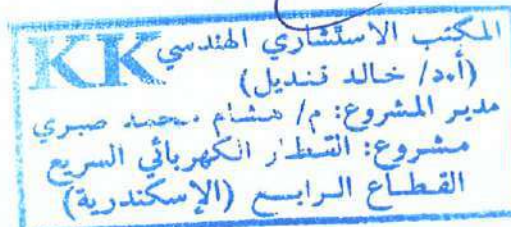 KK المكتب الاستشاري الهندسي
(أ.د/ خالد قنديل)
مدير المشروع: م/ هشام محمد صبري
مشروع: القطار الكهربائي السريع
القطاع الرابع (الإسكندرية)